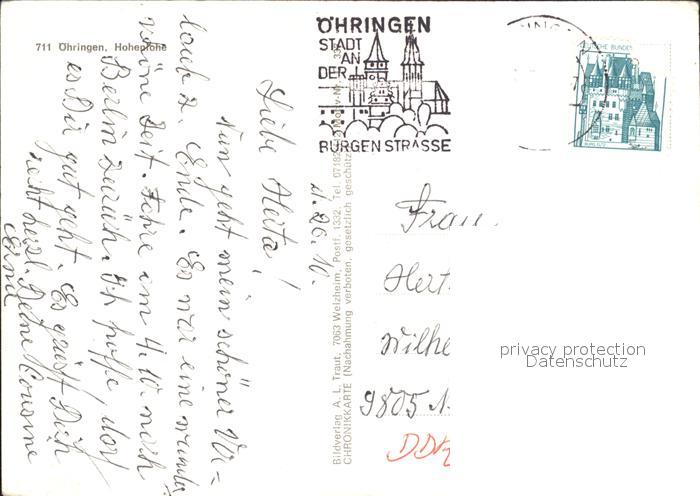 711 Öhringen, Hohenlohe
ÖHRINGEN
STADT
AN
DER
BURGENSTRASSE
DEUTSCHE BUNDES
BURG ELTZ
Liebe Herta!
Nun geht mein schöner Ur-
laub z. Ende. Es war eine wunder
schöne Zeit. Fahre am 4.10. nach
Berlin zurück. Ich hoffe, daß
es Dir gut geht. Es grüßt Dich
recht herzl. Deine Cousine
Erna
Bildverlag A. L. Traut, 7063 Welzheim, Postf. 1332, Tel. 07182
CHRONIKKARTE (Nachahmung verboten, gesetzlich geschützt
Frau
Hert
Wilhe
9805 N.
DDR
privacy protection
Datenschutz